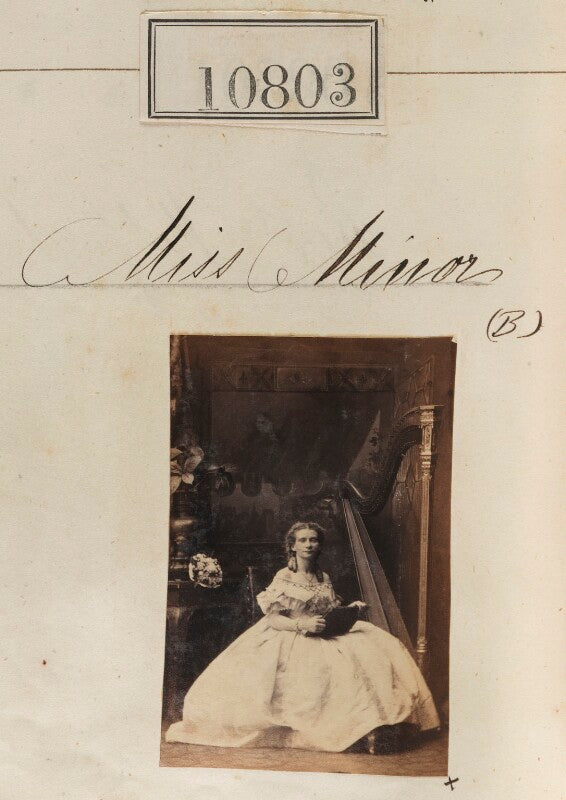 10803
Miss Minor
(B)
x